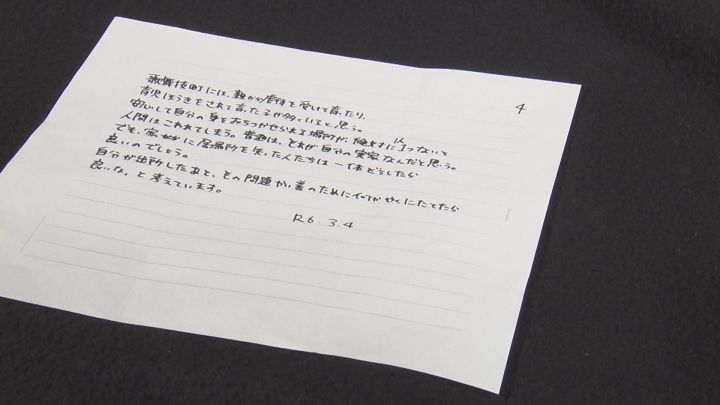 4
歌舞伎町には、親から虐待を受けて育ったり、
育児ほうきをされて育った子が多くいると思う。
安心して自分の身をおちつかせられる場所が、絶対に1つないと
人間はこわれてしまう。普通は、それが自分の実家なんだと思う。
でも、家せかいに居場所を失った人たちは一体どうしたら
良いのでしょう。
自分が出所したあと、その問題かい善のために何かやくにたてたら
良いな、と考えています。
R6.3.4